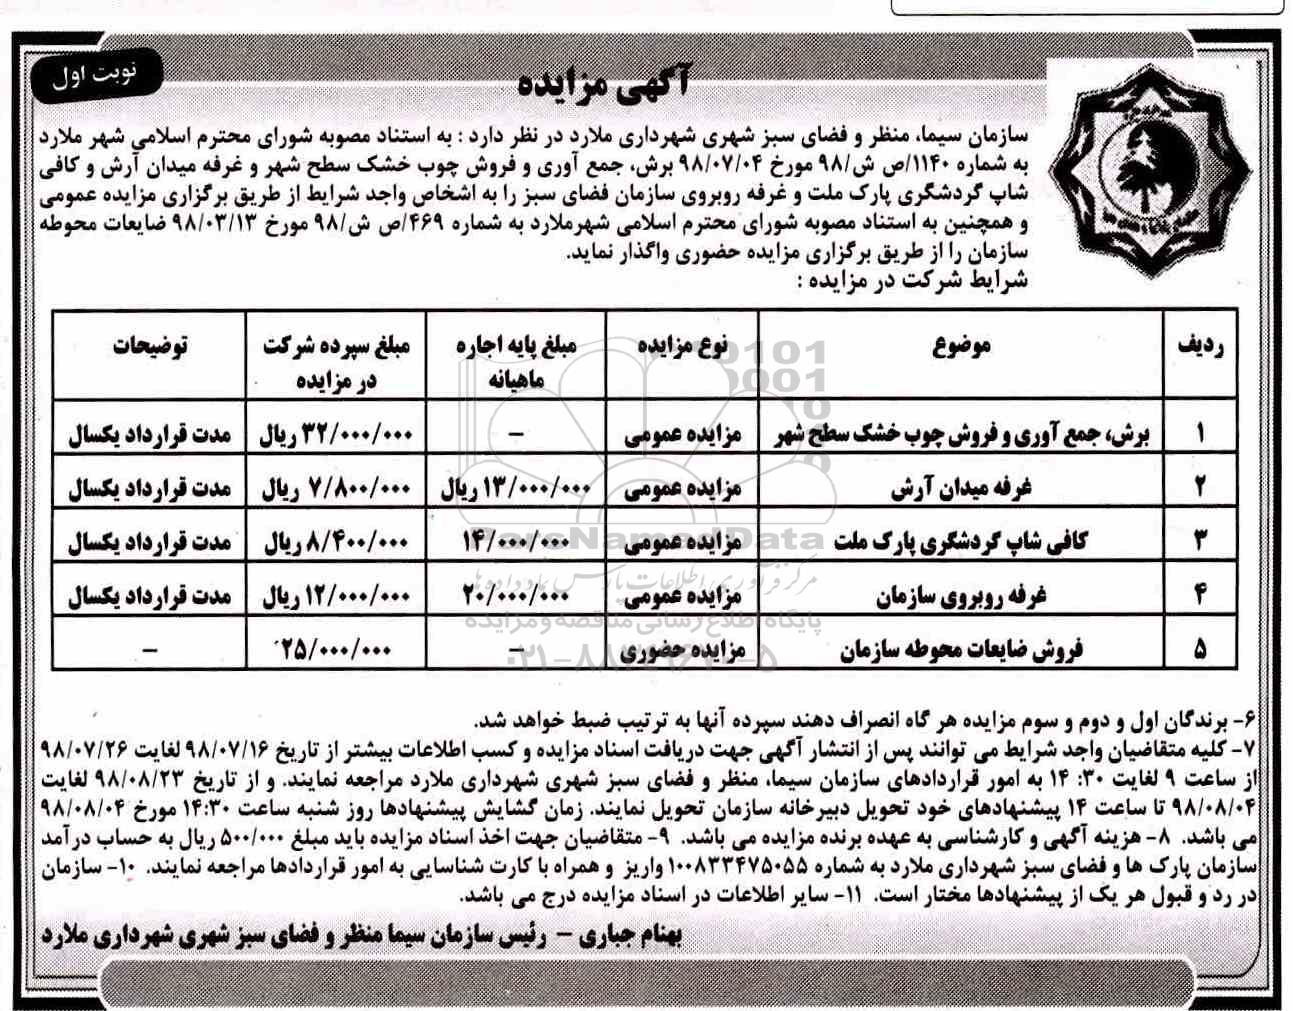 نوبت اول
آگهی مزایده
سازمان سیما، منظر و فضای سبز شهری شهرداری ملارد در نظر دارد : به استناد مصوبه شورای محترم اسلامی شهر ملارد
به شماره ۱۱۴۰/ص ش/۹۸ مورخ ۹۸/۰۷/۰۴ برش، جمع آوری و فروش چوب خشک سطح شهر و غرفه میدان آرش و کافی
شاپ گردشگری پارک ملت و غرفه روبروی سازمان فضای سبز را به اشخاص واجد شرایط از طریق برگزاری مزایده عمومی
و همچنین به استناد مصوبه شورای محترم اسلامی شهرملارد به شماره ۴۶۹/ص ش/۹۸ مورخ ۹۸/۰۳/۱۳ ضایعات محوطه
سازمان را از طریق برگزاری مزایده حضوری واگذار نماید.
شرایط شرکت در مزایده :
ردیف موضوع نوع مزایده مبلغ پایه اجاره ماهیانه مبلغ سپرده شرکت در مزایده توضیحات
۱ برش، جمع آوری و فروش چوب خشک سطح شهر مزایده عمومی – ۳۲/۰۰۰/۰۰۰ ریال مدت قرارداد یکسال
۲ غرفه میدان آرش مزایده عمومی ۱۳/۰۰۰/۰۰۰ ریال ۷/۸۰۰/۰۰۰ ریال مدت قرارداد یکسال
۳ کافی شاپ گردشگری پارک ملت مزایده عمومی ۱۴/۰۰۰/۰۰۰ ۸/۴۰۰/۰۰۰ ریال مدت قرارداد یکسال
۴ غرفه روبروی سازمان مزایده عمومی ۲۰/۰۰۰/۰۰۰ ۱۲/۰۰۰/۰۰۰ ریال مدت قرارداد یکسال
۵ فروش ضایعات محوطه سازمان مزایده حضوری – ۲۵/۰۰۰/۰۰۰ –
ParsNamadData
پایگاه اطلاع رسانی مناقصه و مزایده
۶- برندگان اول و دوم و سوم مزایده هر گاه انصراف دهند سپرده آنها به ترتیب ضبط خواهد شد.
۷- کلیه متقاضیان واجد شرایط می توانند پس از انتشار آگهی جهت دریافت اسناد مزایده و کسب اطلاعات بیشتر از تاریخ ۹۸/۰۷/۱۶ لغایت ۹۸/۰۷/۲۶
از ساعت ۹ لغایت ۳۰: ۱۴ به امور قراردادهای سازمان سیما، منظر و فضای سبز شهری شهرداری ملارد مراجعه نمایند. و از تاریخ ۹۸/۰۸/۲۳ لغایت
۹۸/۰۸/۰۴ تا ساعت ۱۴ پیشنهادهای خود تحویل دبیرخانه سازمان تحویل نمایند. زمان گشایش پیشنهادها روز شنبه ساعت ۱۴:۳۰ مورخ ۹۸/۰۸/۰۴
می باشد. ۸- هزینه آگهی و کارشناسی به عهده برنده مزایده می باشد. ۹- متقاضیان جهت اخذ اسناد مزایده باید مبلغ ۵۰۰/۰۰۰ ریال به حساب درآمد
سازمان پارک ها و فضای سبز شهرداری ملارد به شماره ۱۰۰۸۳۳۴۷۵۰۵۵ واریز و همراه با کارت شناسایی به امور قراردادها مراجعه نمایند. ۱۰- سازمان
در رد و قبول هر یک از پیشنهادها مختار است. ۱۱- سایر اطلاعات در اسناد مزایده درج می باشد.
بهنام جباری – رئیس سازمان سیما منظر و فضای سبز شهری شهرداری ملارد